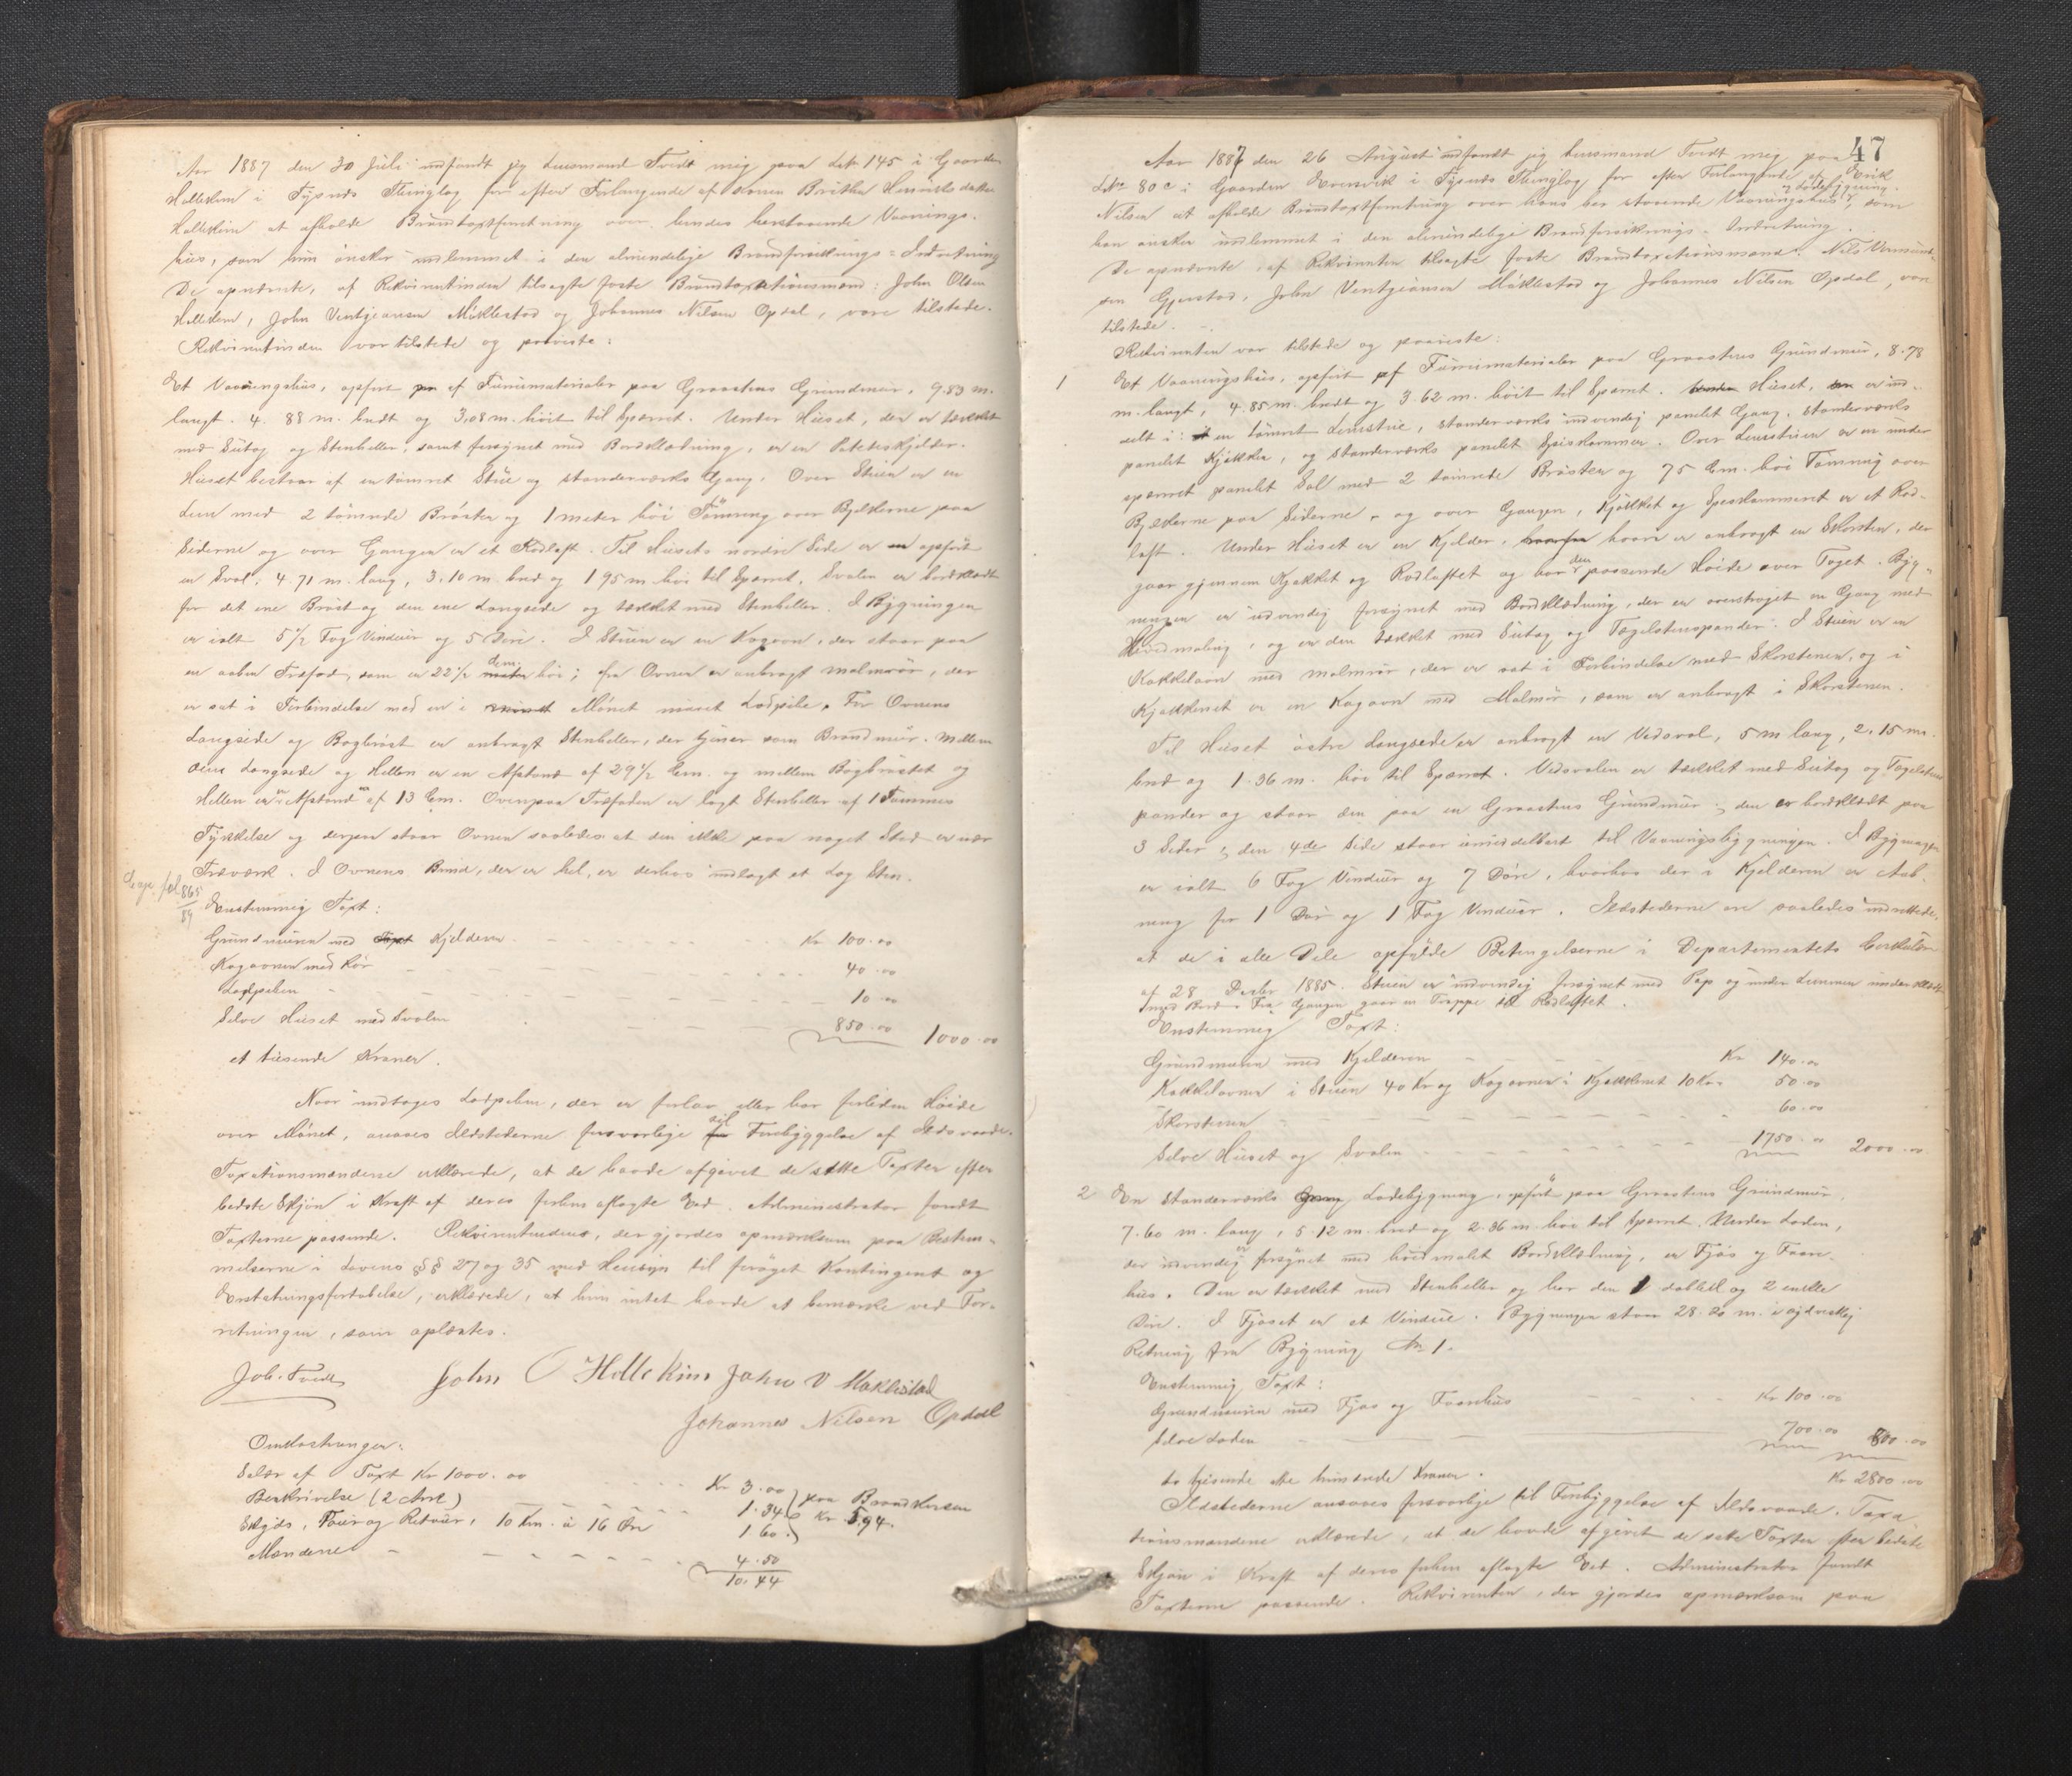 Aar 1887 den 30 Juli indfandt jeg Lensmand Tvedt mig paa Løb. 145 i Gaarden
Hollekim i Tysnæs Thinglag for efter Forlangende af Konen Brithe Henriksdatter
Hollekim at afholde Brandtaxtforretning over hendes herstaaende Vaanings-
hus, som hun ønsker indlemmet i den almindelige Brandforsikrings-Indretning
De opnævnte, af Rekvirentinden tilsagte faste Brandtaxationsmænd: John Olsen
Hollekim, John Ventzeansen Møklestad og Johannes Nilsen Opdal, vare tilstede.
Rekvirentinden var tilstede og paaviste:
Et Vaaningshus, opført paa af Furumaterialer paa Graastens Grundmur, 9.83 m.
langt. 4.88 m. bredt og 3,08 m. høit til Spærret. Under Huset, der er tækket
med Sutag og Stenheller, samt forsynet med Bordklædning, er en Poteteskjelder.
Huset bestaar af en tømret Stue og standerværks Gang. Over Stuen er en
Lem med 2 tømrede Brøster og 1 meter høi Tømring over Bjelkerne paa
Siderne og over Gangen er et Rodloft. Til Husets nordre Side er en opført
en Sval, 4.71 m. lang, 3.10 m. bred og 1 95 m. høi til Spærret. Svalen er bordklædt
for det ene Brøst og den ene Langside og tækket med Stenheller. I Bygningen
er ialt 5 1/2 Fag Vinduer og 5 Døre. I Stuen er en Kogovn, der staar paa
en aaben Træfod, som er 22 1/2 meter cm. høi; fra Ovnen er anbragt Malmrør, der
er sat i Forbindelse med en i Mønet muret Lodpibe. For Ovnens
Langside og Bagbrøst er anbragt Stenheller, der tjener som Brandmur. Mellem
dens Langside og Hellen er en Afstand af 29 1/2 Cm. og mellem Bagbrøstet og
Hellen er en Afstand af 13 Cm. Ovenpaa Træfoden er lagt Stenheller af 1 Tommes
Tykkelse og derpaa staar Ovnen saaledes at den ikke paa noget Sted er nær
Træværk. I Ovnens Bund, der er hel, er derhos indlagt et Lag Sten.
865/89
Enstemmig Taxt:
Grundmuren med Taxt Kjelderen - - - Kr 100.00
Kogovnen med Rør - - - 40.00
Lodpiben - - - 10.00
Selve Huset med Svalen - - - 850.00 1000.00
et tusende Kroner.
Naar undtages Lodpiben, der er for lav, eller har forliden Høide
over Mønet, ansaaes Ildstederne forsvarlige for til Forebyggelse af Ildsvaade.
Taxationsmændene erklærede, at de havde afgivet de satte Taxter efter
bedste Skjøn i Kraft af deres forhen aflagte Eed. Administrator fandt
Taxterne passende. Rekvirentinden, der gjordes opmærksom paa Bestem-
melserne i Lovens §§ 27 og 35 med Hensyn til forøget Kontingent og
Erstatningsfortabelse, erklærede, at hun intet havde at bemærke ved For-
retningen, som oplæstes.
Joh. Tvedt John O Hollekim John V Møklestad
Johannes Nilsen Opdal
Omkostninger:
Salær af Taxt Kr 1000.00 - - - Kr 3.00
Beskrivelse (2 Ark) - - - 1.34 paa Brandkassen
Skyds, Tour og Retour, 10 Km. à 16 Øre 1.60 Kr 5.94.
Mændene - - - 4.50
10.44
47
Aar 1887 den 26 August indfandt jeg Lensmand Tvedt mig paa
Løb. 80 c i Gaarden Evensvik i Tysnæs Thinglag for efter Forlangende af Erik
Nilsen at afholde Brandtaxtforretning over hans her staaende Vaaningshus og Ladebygning, som
han ønsker indlemmet i den almindelige Brandforsikrings-Indretning.
De opnævnte, af Rekvirenten tilsagte faste Brandtaxationsmænd: Nils
sen Gjerstad, John Ventzeansen Møklestad og Johannes Nilsen Opdal, vare
tilstede.
Rekvirenten var tilstede og paaviste:
1 Et Vaaningshus, opført af Furumaterialer paa Graastens Grundmur, 8.78
m. langt, 4.85 m. bredt og 3.62 m. høit til Spærret. Under Huset, er ind-
delt i: en tømret Lemstue, standerværks indvendig panelet Gang, standerværks
panelet Kjøkken, og standerværks panelet Spiskammer. Over Lemstuen er en under
spærret panelet Sal med 2 tømrede Brøster og 75 Cm. høi Tømring over
Bjelkerne paa Siderne, og over Gangen, Kjøkket og Spiskammeret er et Rod-
loft. Under Huset er en Kjelder, hvorfra hvori er anbragt en Skorsten, der
gaar gjennem Kjøkket og Rodloftet og har den passende Høide over Taget. Byg-
ningen er udvendig forsynet med Bordklædning, der er overstrøget en Gang med
Hvidmaling, og er den tækket med Sutag og Tagelstenspander. I Stuen er en
Kakkelovn med Malmrør, der er sat i Forbindelse med Skorstenen, og i
Kjøkkenet er en Kogovn med Malmrør, som er anbragt i Skorstenen.
Til Huset østre Langside er anbragt en Vedsval, 5 m lang, 2.15 m.
bred og 1.36 m. høi til Spærret. Vedsvalen er tækket med Sutag og Tagelstens
pander og staar den paa en Graastens Grundmur; den er bordklædt paa
3 Sider; den 4de Side staar umiddelbart til Vaaningsbygningen. I Bygningen
er ialt 6 Fag Vinduer og 7 Døre, hvorhos der i Kjelderen er Aab-
ning for 1 Dør og 1 Fag Vinduer. Ildstederne ere saaledes indrettede,
at de i alle Dele opfylde Betingelserne i Departementets Cirkulære
af 28 Decbr 1885. Stuen er indvendig forsynet med Pap og under Lemmen underklædt
med Bord. Fra Gangen gaar en Trappe til Rodloftet.
Enstemmig Taxt:
Grundmuren med Kjelderen - - - Kr 140.00
Kakkelovnen i Stuen 40 Kr og Kogovnen i Kjøkkenet 10 Kr. 50.00
Skorstenen - - - 60.00
Selve Huset og Svalen - - - 1750.00 2000.00
2 En standerværks Ladebygning, opført paa Graastens Grundmur,
7.60 m. lang, 5.12 m. bred og 2.36 m. høi til Spærret. Under Laden,
der udvendig er forsynet med hvidmalet Bordklædning, er Fjøs og Faare-
hus. Den er tækket med Stenheller og har den 1 dobbelt og 2 enkelte
Døre. I Fjøset er et Vindue. Bygningen staar 28.20 m. i sydvestlig
Retning fra Bygning No 1.
Enstemmig Taxt:
Grundmuren med Fjøs og Faarehus - - - Kr 100.00
Selve Laden - - - 700.00 800.00
to tusende otte hundrede Kroner. Kr 2800.00
Ildstederne ansaaes forsvarlige til Forebyggelse af Ildsvaade. Taxa
tionsmændene erklærede, at de havde afgivet de satte Taxter efter bedste
Skjøn i Kraft af deres forhen aflagte Eed. Administrator fandt
Taxterne passende. Rekvirenten, der gjordes opmærksom paa